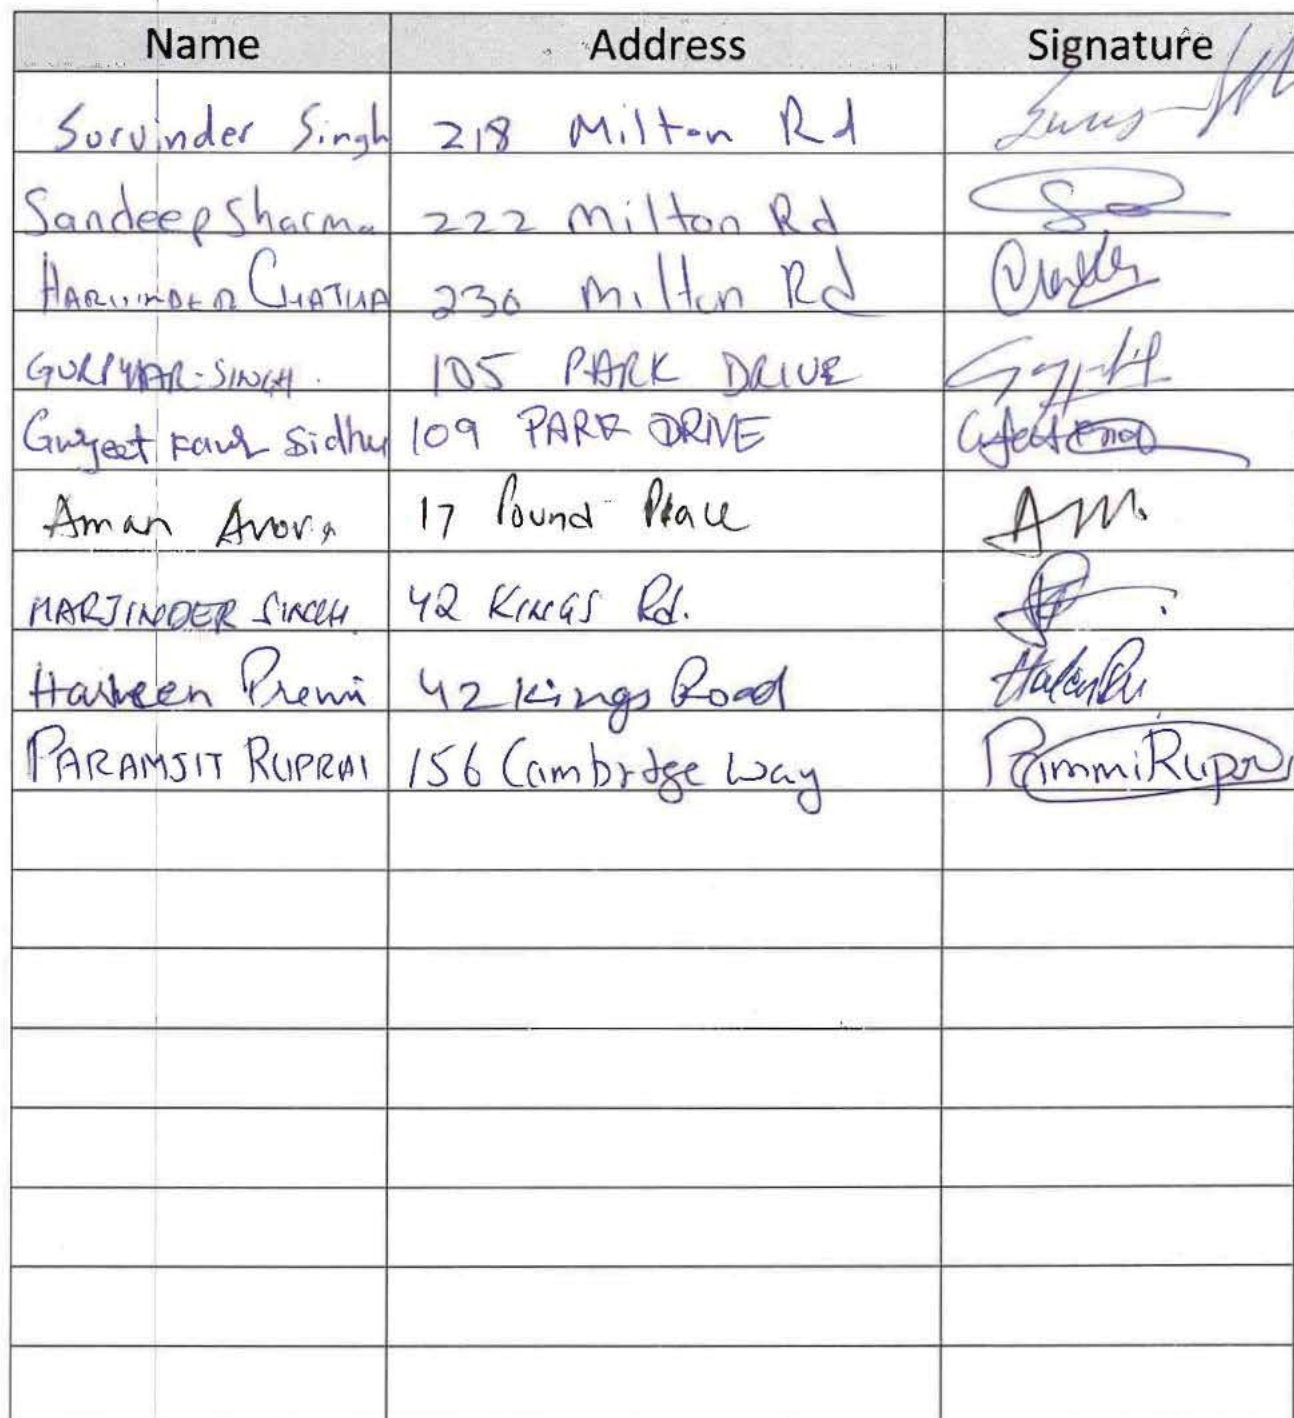 Name Address Signature
Survinder Singh 218 Milton Rd
Sandeep Sharma 222 Milton Rd
HARVINDER CHATHA 230 Milton Rd
SINGH 105 PARK DRIVE
Gurjeet Kaur Sidhu 109 PARK DRIVE
Aman Arora 17 Pound Place AM.
HARJINDER SINGH 42 KINGS Rd.
Harleen Premi 42 Kings Road
PARAMJIT RUPRAI 156 Cambridge Way